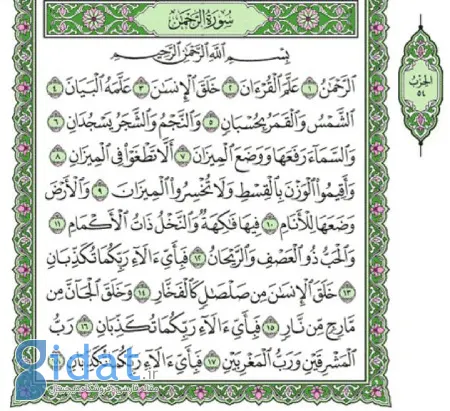 سُورَةُ الرَّحْمَٰن
بِسْمِ اللَّهِ الرَّحْمَٰنِ الرَّحِيمِ
الرَّحْمَٰنُ ١ عَلَّمَ الْقُرْءَانَ ٢ خَلَقَ الْإِنسَٰنَ ٣ عَلَّمَهُ الْبَيَانَ ٤
الشَّمْسُ وَالْقَمَرُ بِحُسْبَانٍ ٥ وَالنَّجْمُ وَالشَّجَرُ يَسْجُدَانِ ٦
وَالسَّمَاءَ رَفَعَهَا وَوَضَعَ الْمِيزَانَ ٧ أَلَّا تَطْغَوْا فِي الْمِيزَانِ ٨
وَأَقِيمُوا الْوَزْنَ بِالْقِسْطِ وَلَا تُخْسِرُوا الْمِيزَانَ ٩ وَالْأَرْضَ
وَضَعَهَا لِلْأَنَامِ ١٠ فِيهَا فَٰكِهَةٌ وَالنَّخْلُ ذَاتُ الْأَكْمَامِ ١١
وَالْحَبُّ ذُو الْعَصْفِ وَالرَّيْحَانُ ١٢ فَبِأَيِّ ءَالَاءِ رَبِّكُمَا تُكَذِّبَانِ
١٣ خَلَقَ الْإِنسَٰنَ مِن صَلْصَٰلٍ كَالْفَخَّارِ ١٤ وَخَلَقَ الْجَانَّ مِن
مَّارِجٍ مِّن نَّارٍ ١٥ فَبِأَيِّ ءَالَاءِ رَبِّكُمَا تُكَذِّبَانِ ١٦ رَبُّ
الْمَشْرِقَيْنِ وَرَبُّ الْمَغْرِبَيْنِ ١٧ فَبِأَيِّ ءَالَاءِ رَبِّكُمَا تُكَذِّبَانِ
الحِزْبُ
٥٤
gidat